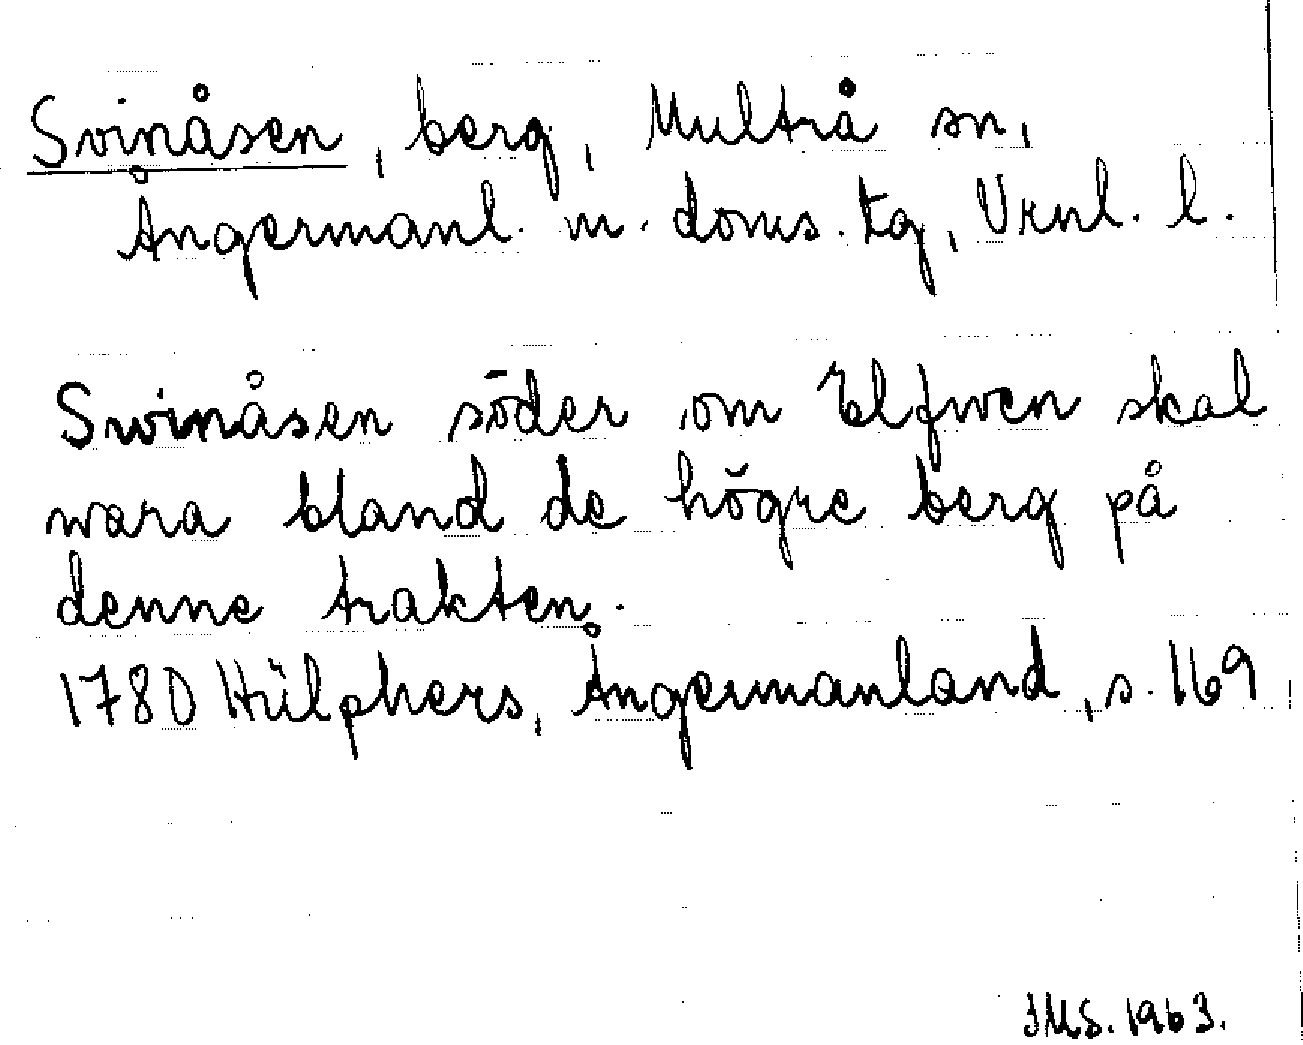 Svinåsen, berg, Multrå sn,
Ångermanl. m. doms. tg, Vrnl. l.
Swinåsen söder om Elfwen skal
wara bland de högre berg på
denne trakten.
1780 Hülphers, Ångermanland, s. 169
JMS. 1963.